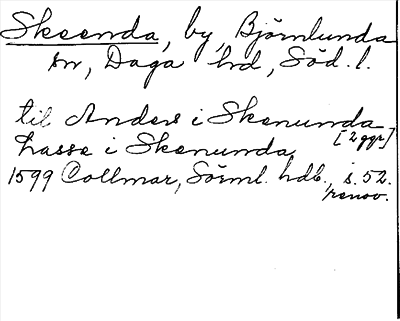 Skeenda, by, Björnlunda
sn, Daga hd, Söd. l.
til Anders i Skenunda
[2 ggr]
Lasse i Skenunda
1599 Collmar, Sörml. hdb., s. 52.
renov.